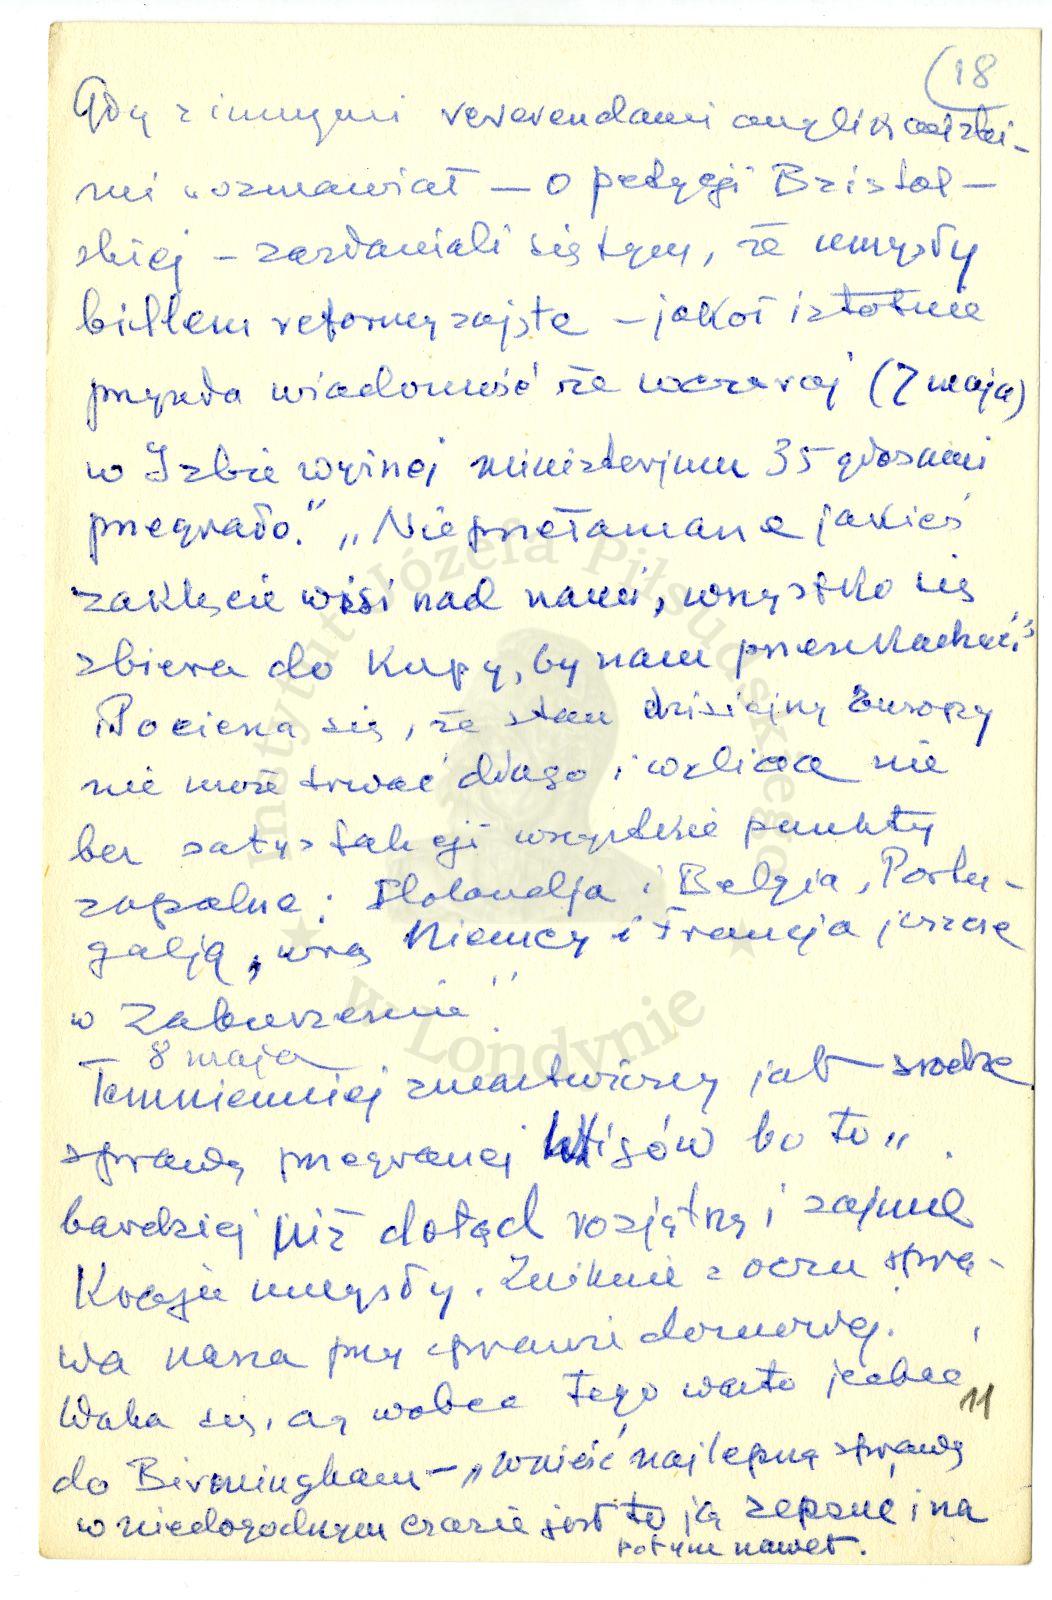 18
Gdy z innymi reverendami anglikański-
mi rozmawiał — o petycji Bristol-
skiej — zasłaniali się tym, że umysły
billem reformy zajęte — jakoż istotnie
przyszła wiadomość że wczoraj (7 maja)
w Izbie wyższej ministerjum 35 głosami
przegrało." „Nieprzełamane jakieś
zaklęcie wisi nad nami, wszystko się
zbiera do kupy, by nam przeszkadzać"
Pociesza się, że stan dzisiejszy Europy
nie może trwać długo i wylicza nie
bez satysfakcji wszystkie punkty
zapalne: Holandja i Belgia, Portu-
galją, wrą Niemcy i Francja jeszcze
w zaburzeniu".
— 8 maja
Temniemniej zmartwiony jest srodze
sprawą przegranej Whigów bo to „
bardziej niż dotąd rozjątrzy i zajmie
Kraju umysły. Zniknie z oczu spra-
wa nasza przy sprawie domowej.
Waha się, czy wobec tego warto jechać
11
do Birmingham — „wnieść najlepszą sprawę
w niedogodnym czasie jest to ją zepsuć i na
potym nawet.
Instytut Józefa Piłsudskiego
w Londynie